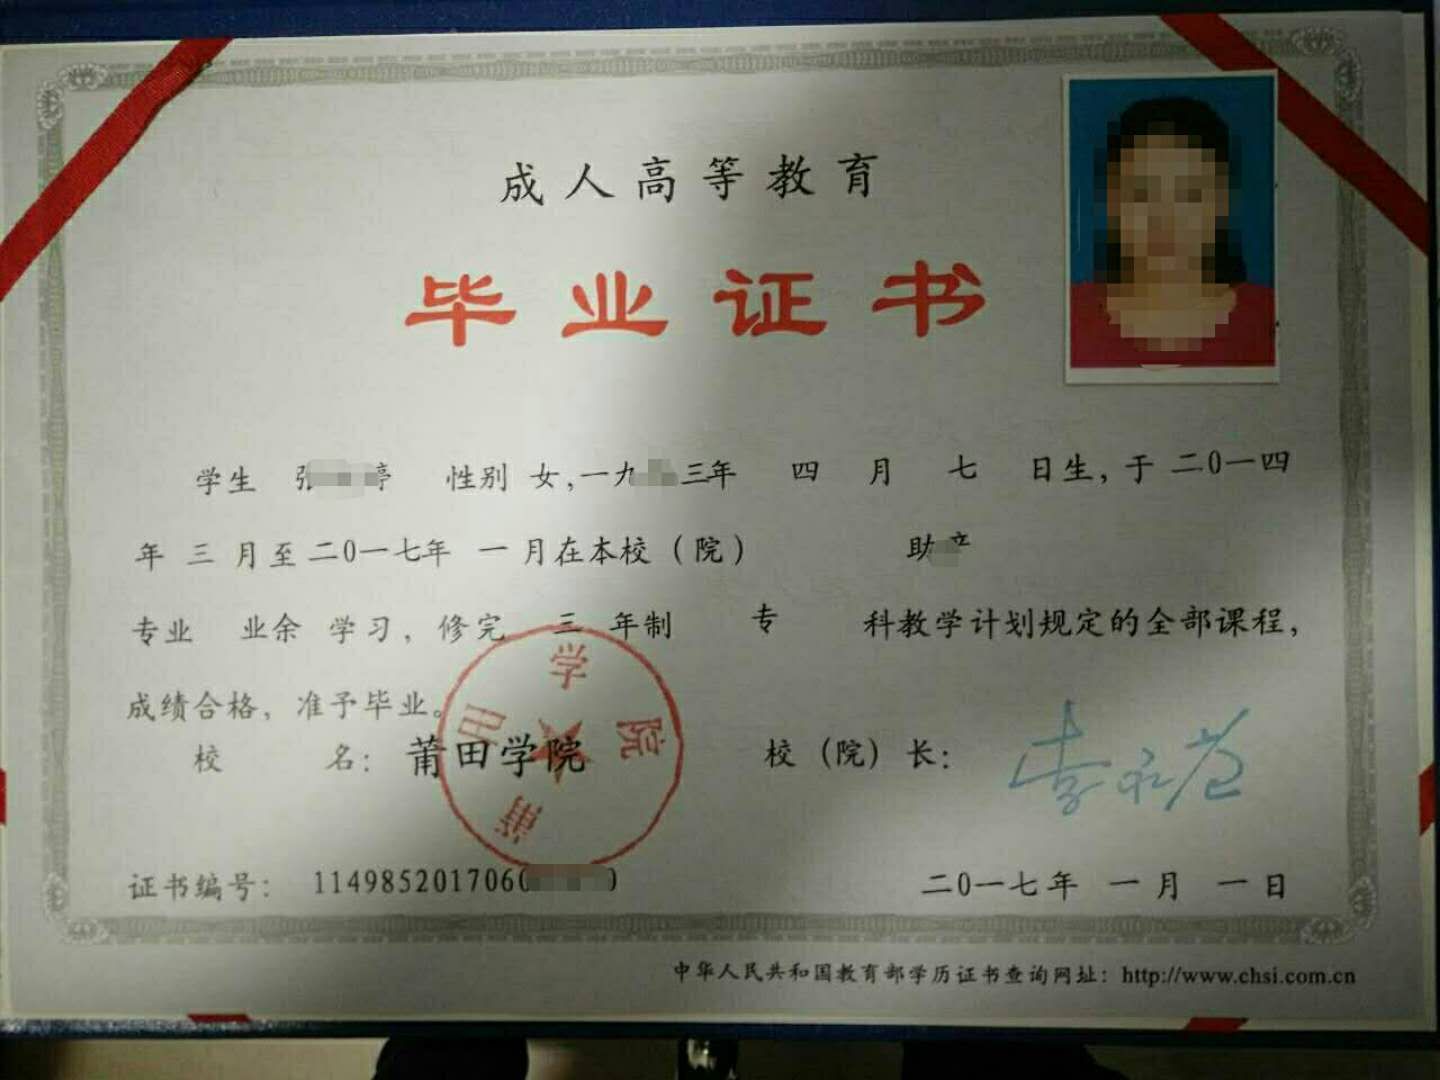 成人高等教育
毕业证书
学生 张 婷 性别 女,一九 三年 四 月 七 日生,于 二0一四
年 三 月至 二0一七年 一 月在本校(院) 助
专业 业余 学习,修完 三 年制 专 科教学计划规定的全部课程,
成绩合格,准予毕业。
校 名:莆田学院 校(院)长:
莆田学院
证书编号: 114985201706 0
二0一七年 一 月 一 日
中华人民共和国教育部学历证书查询网址:http://www.chsi.com.cn